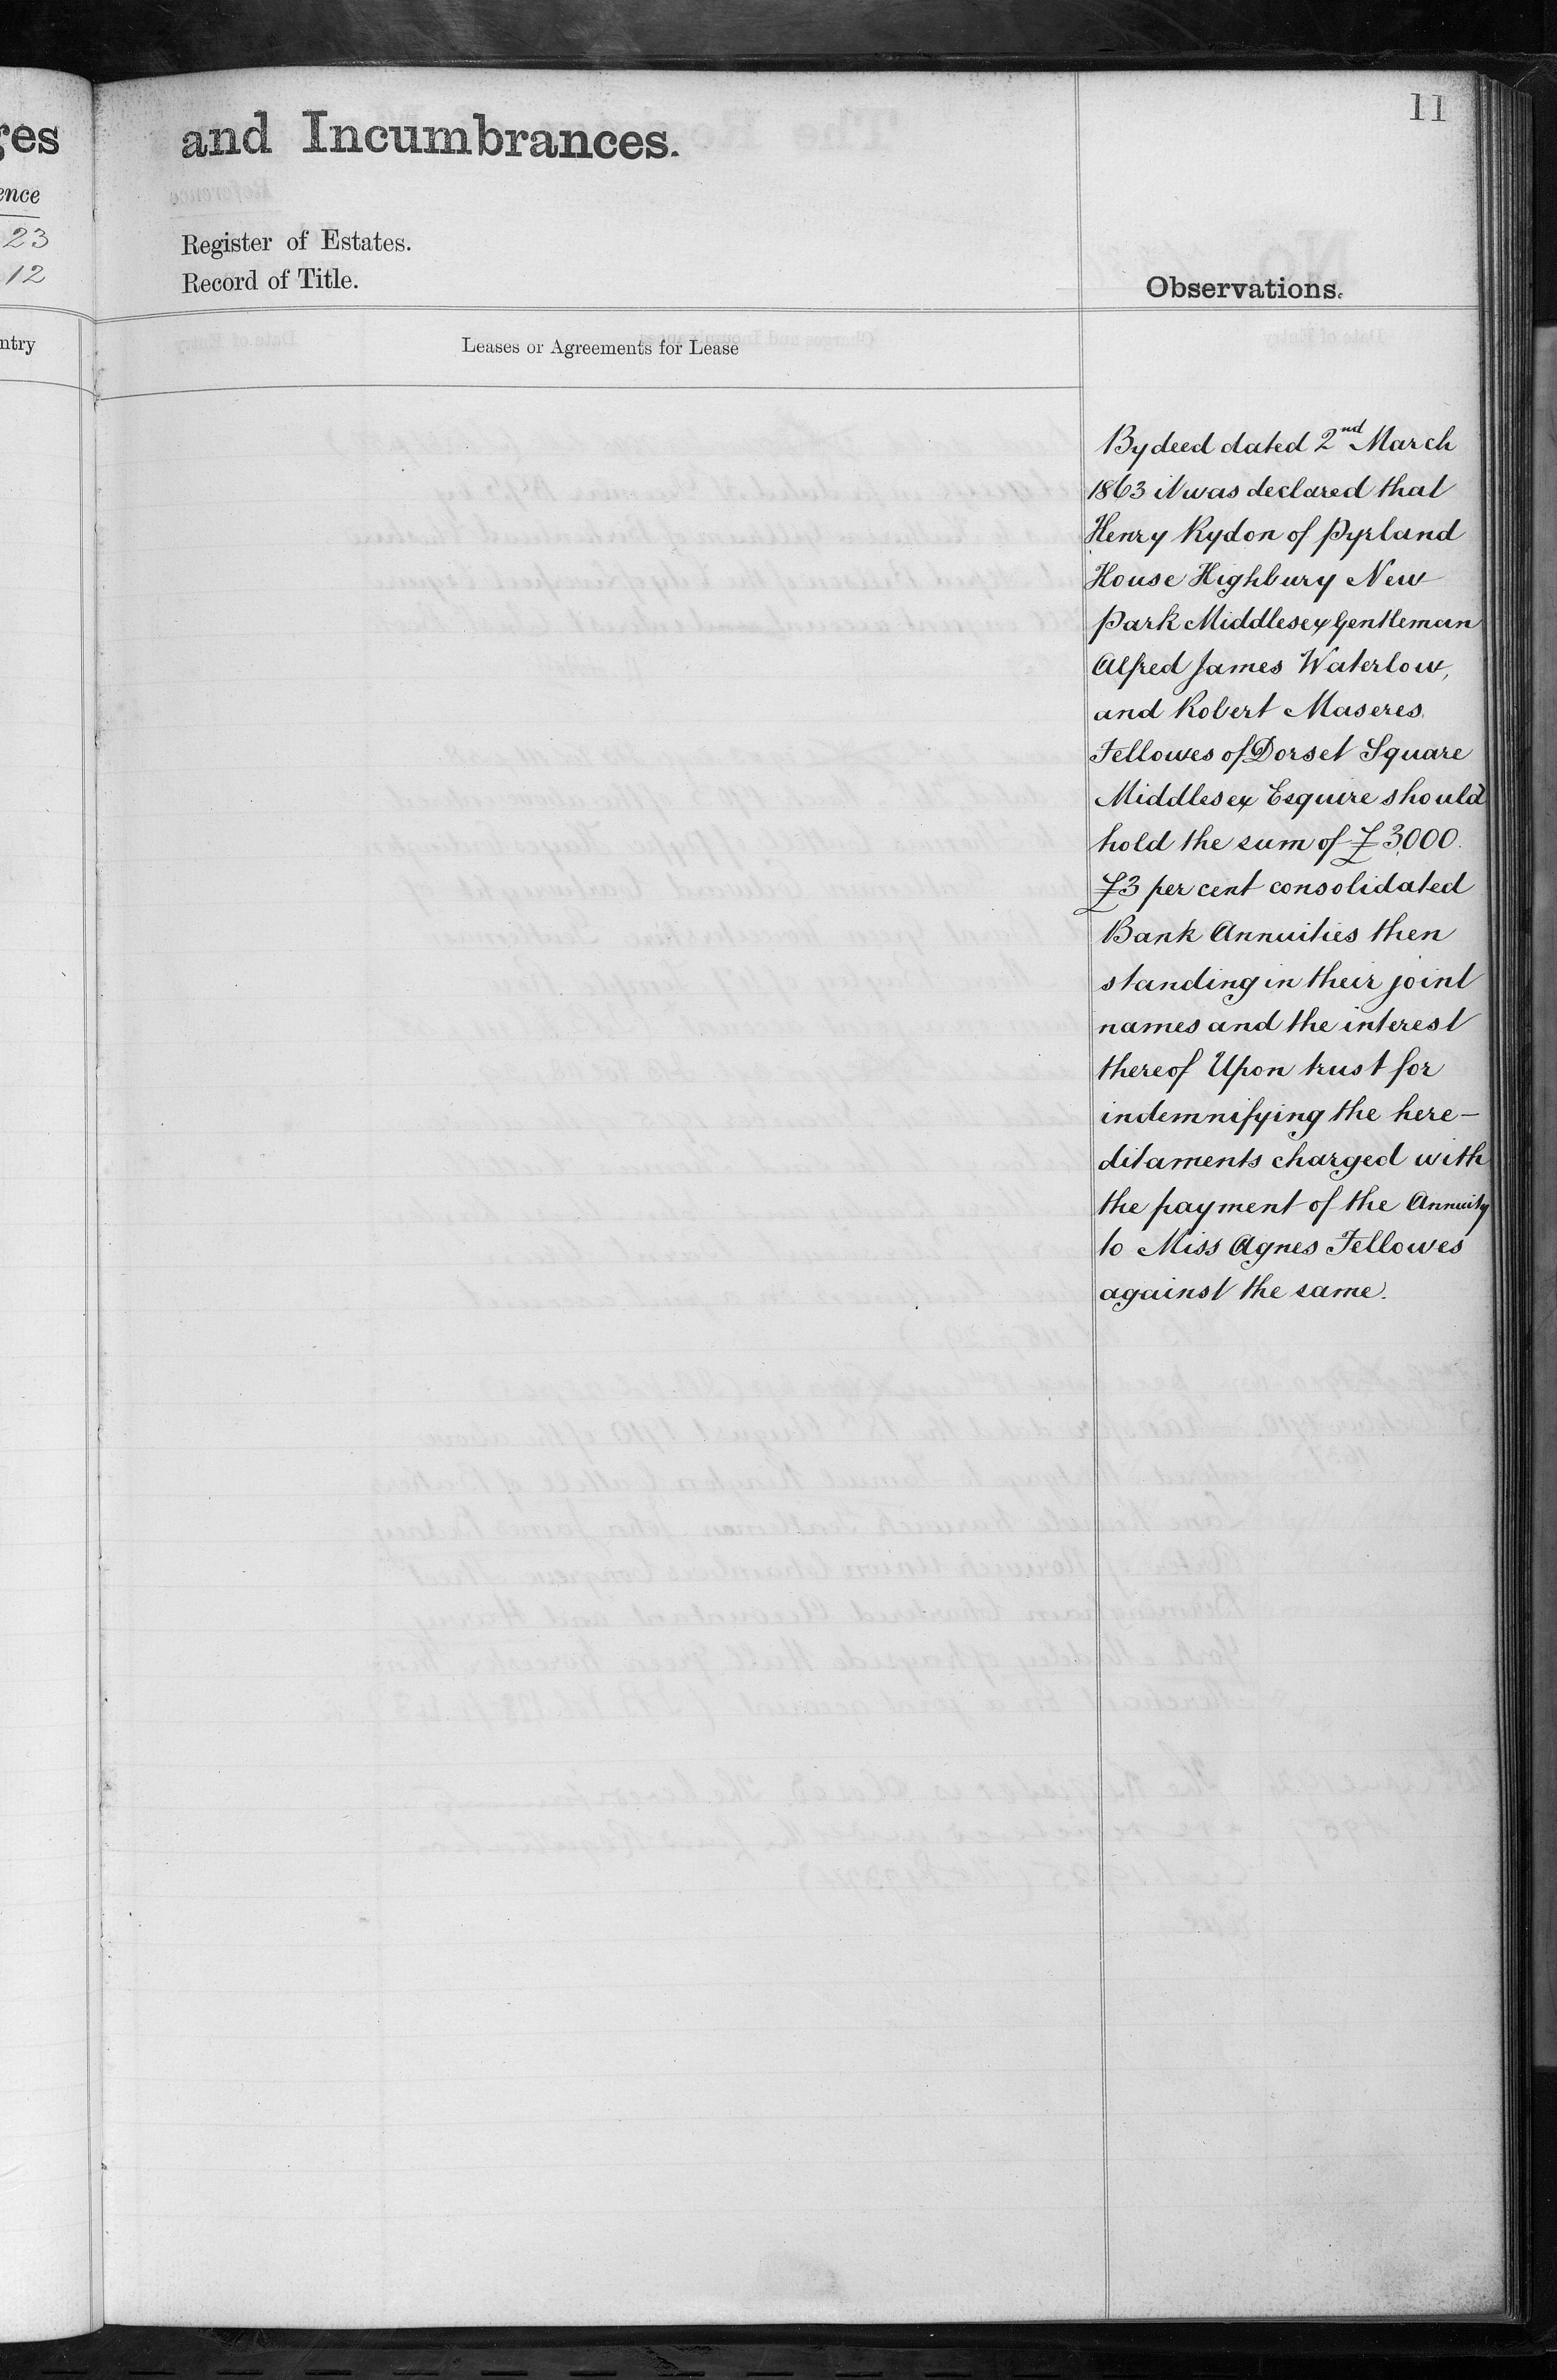 11
ges
and Incumbrances.
ence
23
Register of Estates.
12
Record of Title.
Observations.
ntry
Leases or Agreements for Lease
By deed dated 2nd March
1863 it was declared that
Henry Rydon of Pyrland
House Highbury New
Park Middlesex Gentleman
Alfred James Waterlow,
and Robert Maseres
Fellowes of Dorset Square
Middlesex Esquire should
hold the sum of £3000.
£3 per cent consolidated
Bank Annuities then
standing in their joint
names and the interest
thereof Upon trust for
indemnifying the here-
ditaments charged with
the payment of the Annuity
to Miss Agnes Fellowes
against the same.